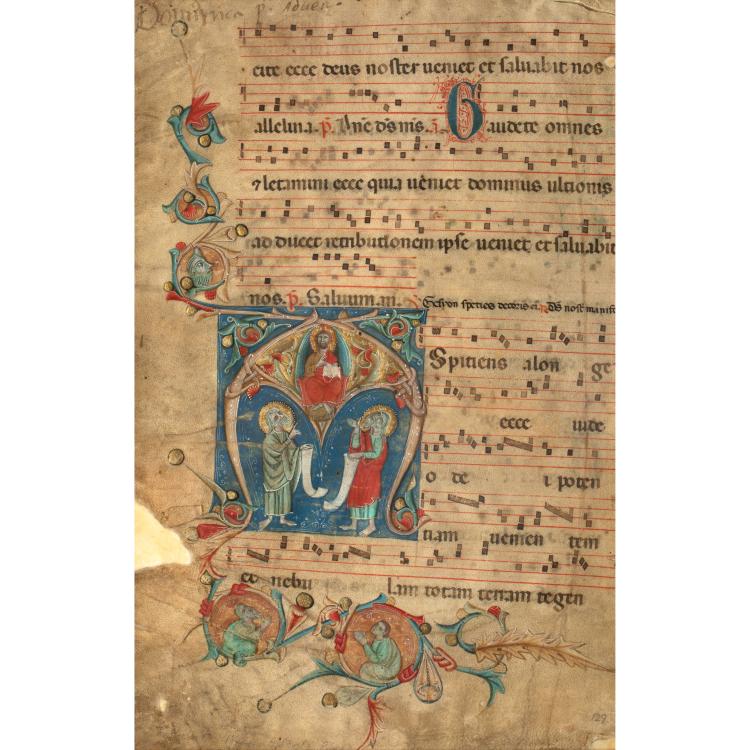 Dominica p. aduen.
cite ecce deus noster ueniet et saluabit nos
alleluia. p. Ant̄e dn̄s nis. a. Gaudete omnes
⁊ letamini ecce quia ueniet dominus ultionis
ad ducet retributionem ipse ueniet et saluabit
nos. p. Saluum. m.
Spitiens alon ge
ecce uide
o de i poten
tiam uenien tem
et nebu lam totam terram tegen
129